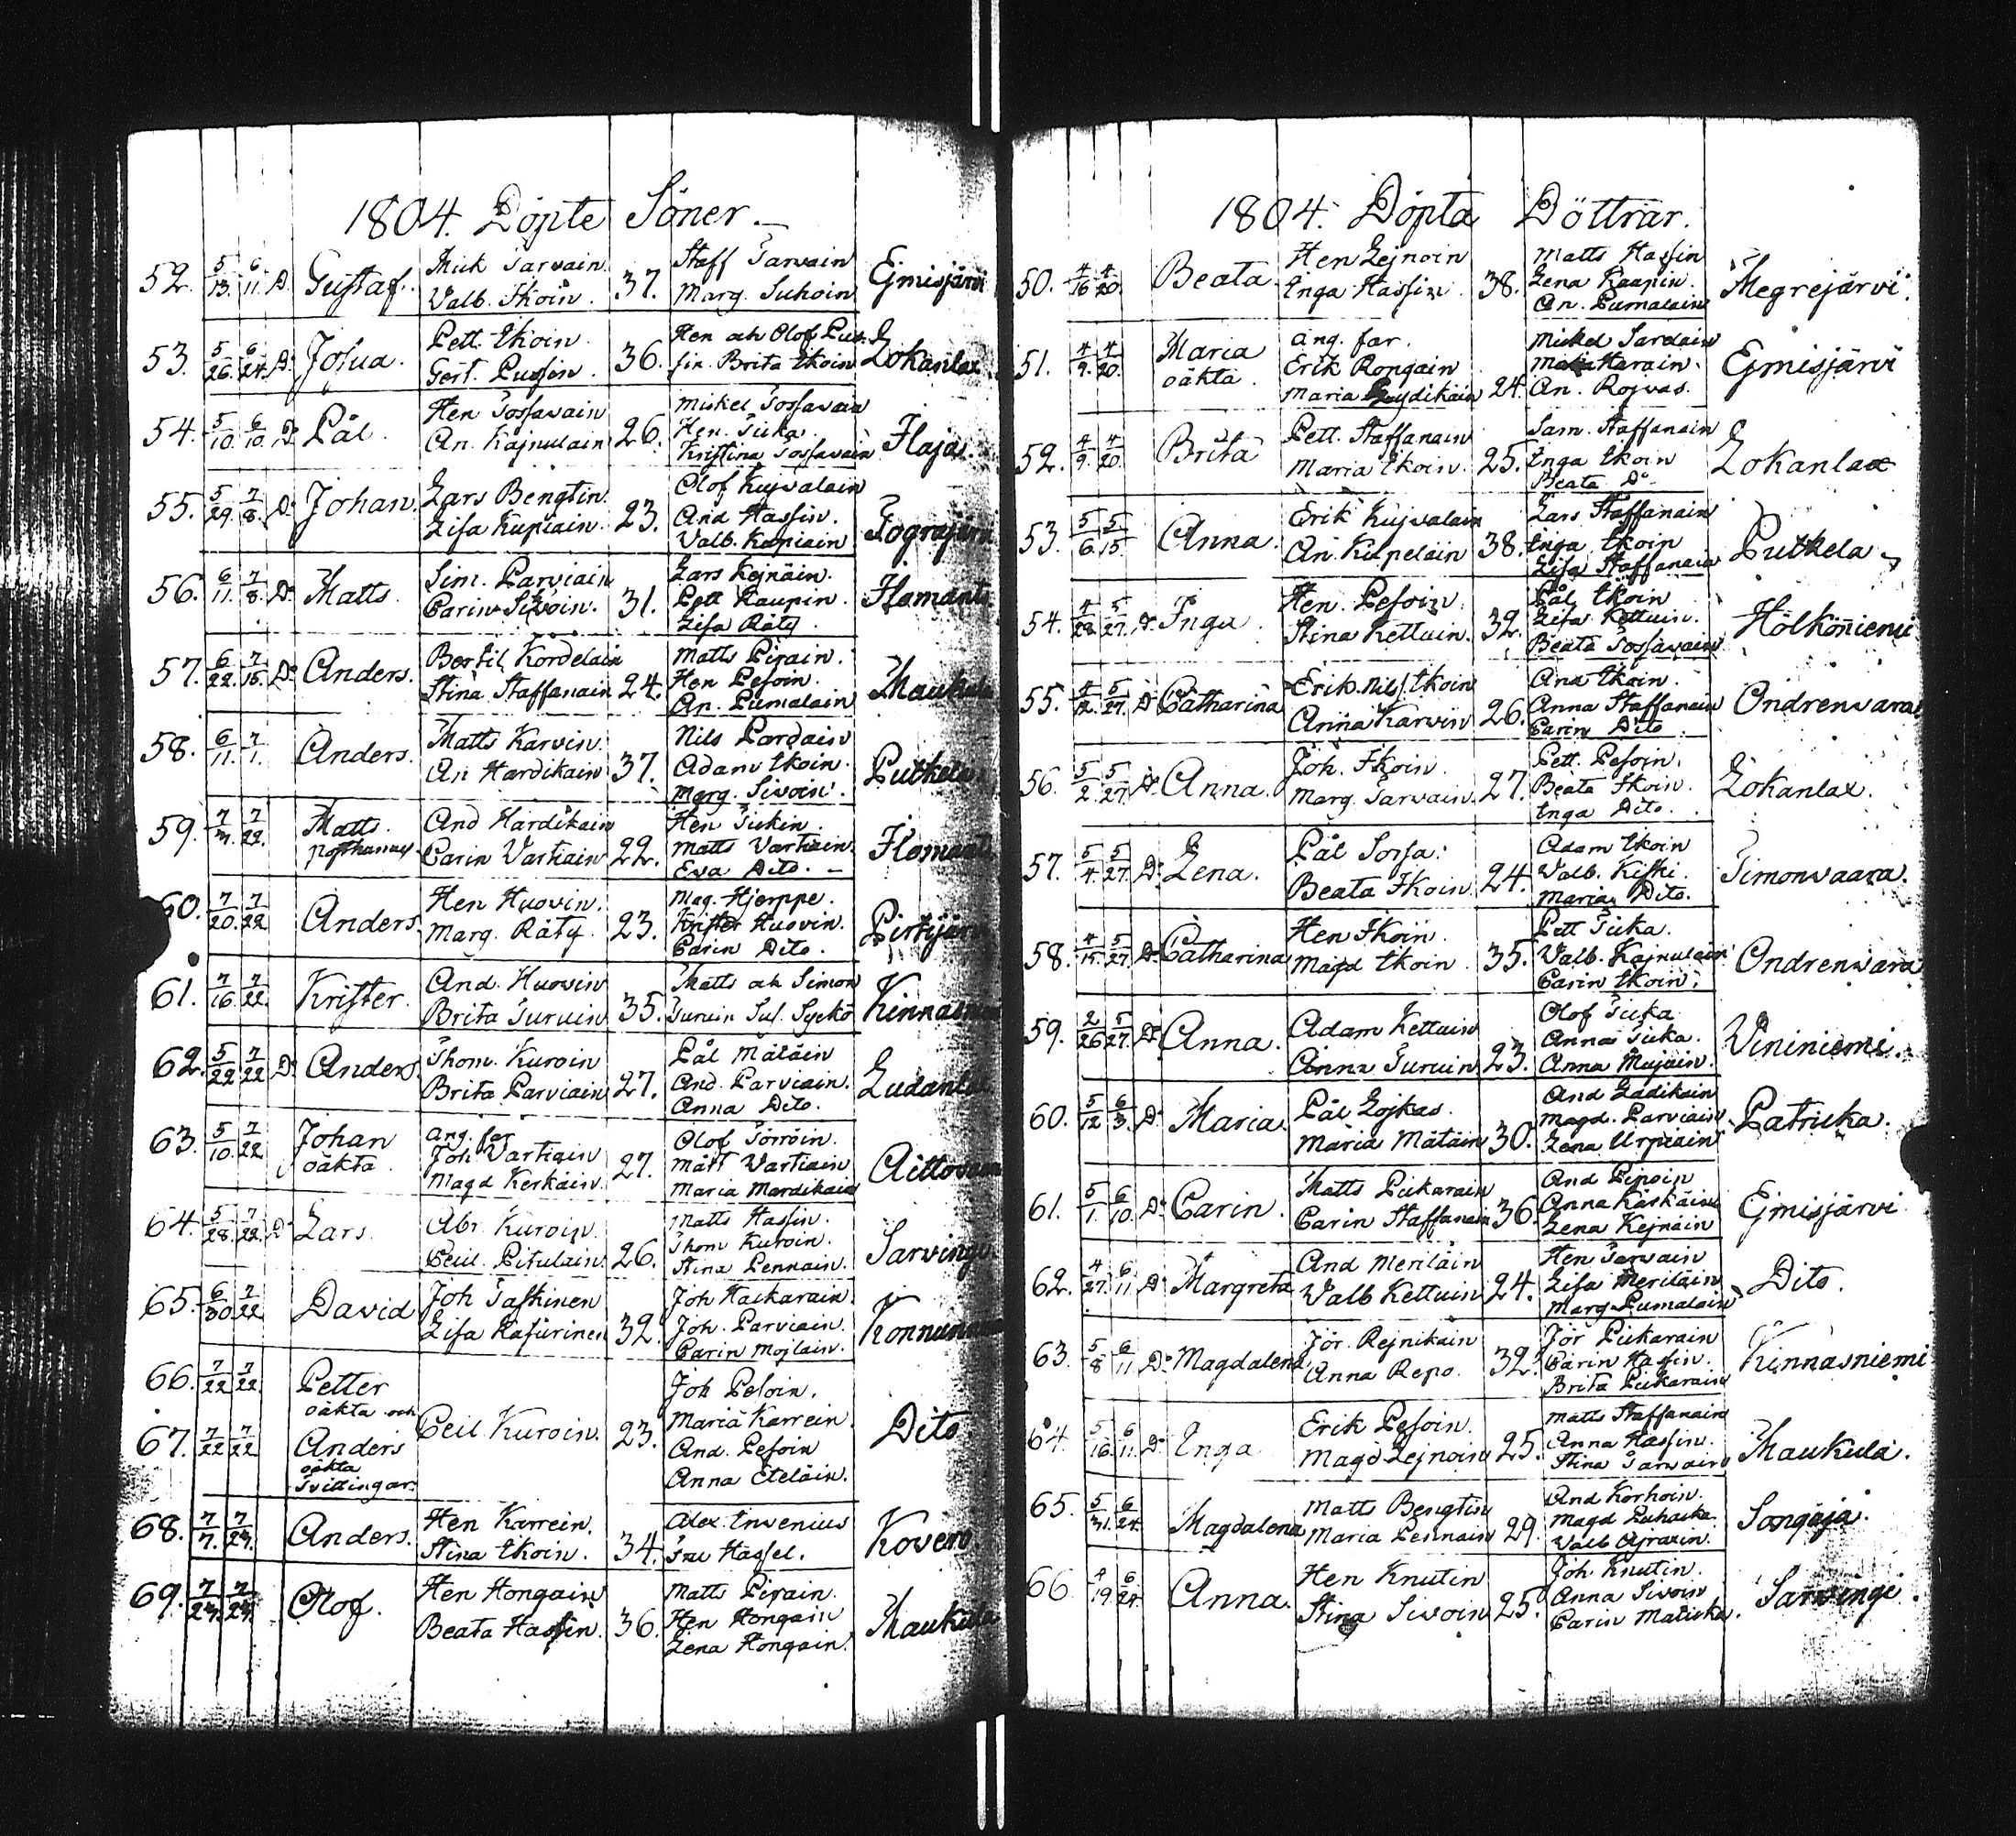 1804. Döpte Söner.
52. 5/13. 6/11. D. Gustaf. Mick Tarvain Valb. Ikoin. 37. Staff Tarvain Marg. Suhoin Ejmisjärvi
53. 5/26. 6/24. D. Josua. Pett. Ikoin. Gert. Pussin. 36. Hen och Olof Pus- sin. Brita Ikoin Lokanlax.
54. 5/10. 6/10. D. Pål. Hen Tossavain An. Kajnulain 26. Mickel Tossavain Hen. Tiicka. Kristina Tossavain Ilaja.
55. 5/29. 7/8. D. Johan. Lars Bengtin. Lisa Kupiain. 23. Olof Kujvalain And Hassin. Valb. Kupiain
56. 6/11. 7/8. D. Matts. Sim. Parviain Carin Sivoin. 31. Lars Kejnäin. Pett Kaupin. Lisa Räty. Ilomants.
57. 6/22. 7/15. D. Anders. Bertil Kordelain Stina Staffanain 24. Matts Pirain. Hen Pesoin. An. Pumalain Maukula
58. 6/11. 7/1. Anders. Matts Karvin. An Hardikain 37. Nils Pardain Adam Ikoin. Marg. Sivoin. Putkela.
59. 7/3. 7/22. Matts. And Hardikain Carin Vartiain 22. Hen Tickin. Matts Vartiain. Eva Dito. Ilomants
60. 7/20. 7/22 Anders. Hen Huovin. Marg. Räty. 23. Mag. Hjerppe. Krister Huovin. Carin Dito.
61. 7/16. 7/22. Krister. And. Huovin Brita Turuin 35. Matts och Simon Turuin Sul. Syckö Kinnasniemi
62. 5/22 7/22 D. Anders. Thom. Kuroin Brita Parviain 27. Pål Mätäin And. Parviain. Anna Dito.
63. 5/10. 7/22 Johan oäkta. Ang. far Joh Vartiain Magd Kerkäin. 27. Olof Törröin. Matt Vartiain Maria Mardikain
64. 5/28. 7/22. D. Lars. Abr. Kuroin. Cecil. Pitulain. 26. Matts Hassin. Thom Kuroin. Stina Pennain. Sarvinge.
65. 6/30 7/22 David Joh Taskinen Lisa Kasurinen 32. Joh Hackarain. Joh. Parviain. Carin Mojlain.
66. 7/22 7/22. Petter oäkta och
67. 7/22 7/22 Anders oäkta Tvillingar. Cecil Kuroin. 23. Joh Pesoin. Maria Karrein. And. Pesoin Anna Eteläin. Dito
68. 7/7. 7/23. Anders. Hen Karrein. Stina Ikoin. 34. Alex. Envenius Hassel. Kovero
69. 7/23. 7/23. Olof. Hen Hongain Beata Hassin. 36. Matts Pirain. Hen Hongain Lena Hongain. Maukula
1804. Döpta Döttrar.
50. 4/16 4/20. Beata. Hen Lejnoin Inga Hassin. 38. Matts Hassin Lena Kaapin. An. Pumalain Megrejärvi.
51. 4/9. 4/20. Maria oäkta. Ang. far. Erik Rongain Maria 24. Mickel Sardain An. Rojvas. Ejmisjärvi
52. 4/9. 4/20. Brita Pett. Staffanain Maria Ikoin. 25. Sam. Staffanain Inga Ikoin Beata Do Lokanlax
53. 5/6. 5/15. Anna. Erik Kujvalain An. Kupelain 38. Lars Staffanain Inga Ikoin Lisa Staffanain Putkela
54. 4/28. 5/27. D. Inga. Hen. Pesoin. Stina Kettuin. 32. Pål Ikoin Lisa Kettuin. Beata Tossavain Hölkönniemi
55. 4/12. 5/27. D. Catharina Erik. Nils. Ikoin Anna Karvin 26. And Ikoin. Anna Staffanain Carin Dito Ondrenvara
56. 5/2. 5/27. D. Anna. Joh. Ikoin. Marg. Tarvain. 27. Pett. Pesoin. Beata Ikoin. Inga Dito. Lokanlax.
57. 5/4. 5/27. D. Lena. Pål Sorsa. Beata Ikoin. 24. Adam Ikoin Valb. Kiski. Maria Dito. Timonvaara.
58. 4/15. 5/27. D. Catharina Hen Ikoin. Magd Ikoin. 35. Pett Tiicka. Valb. Kajnulain Carin Ikoin. Ondrenvara
59. 2/26 5/27. D. Anna. Adam Kettuin Anna Turuin 23. Olof Tiicka. Anna Tiicka. Anna Mujain. Vininiemi.
60. 5/12 6/3. D. Maria. Pål Lojkas. Maria Mätäin 30. And Ladikain Magd. Parviain. Lena Urpiain Patricka.
61. 5/1. 6/10. D. Carin. Matts Pickarain Carin Staffanain 36. And Piipoin Anna Kärkäin Lena Kejnäin Ejmisjärvi
62. 4/27. 6/11. D. Margreta And Meriläin Valb Kettuin 24. Hen Tarvain Lisa Meriläin Marg Pumalain Dito.
63. 5/8 6/11 D. Magdalena Jör. Rejnikain Anna Repo. 32. Jör Pickarain Carin Hassin. Brita Pickarain Kinnasniemi
64. 5/16. 6/11. D. Inga Erik Pesoin. Magd Lejnoin 25. Matts Staffanain Anna Hassin. Stina Tarvain Maukula.
65. 5/31. 6/24. Magdalena Matts Bengtin Maria Pennain 29. And Korhoin. Magd Valb Ajraxin. Songaja.
66 4/19. 6/24. Anna. Hen Knutin Stina Sivoin 25. Joh Knutin. Anna Sivoin Carin Maticka. Sarvinge.